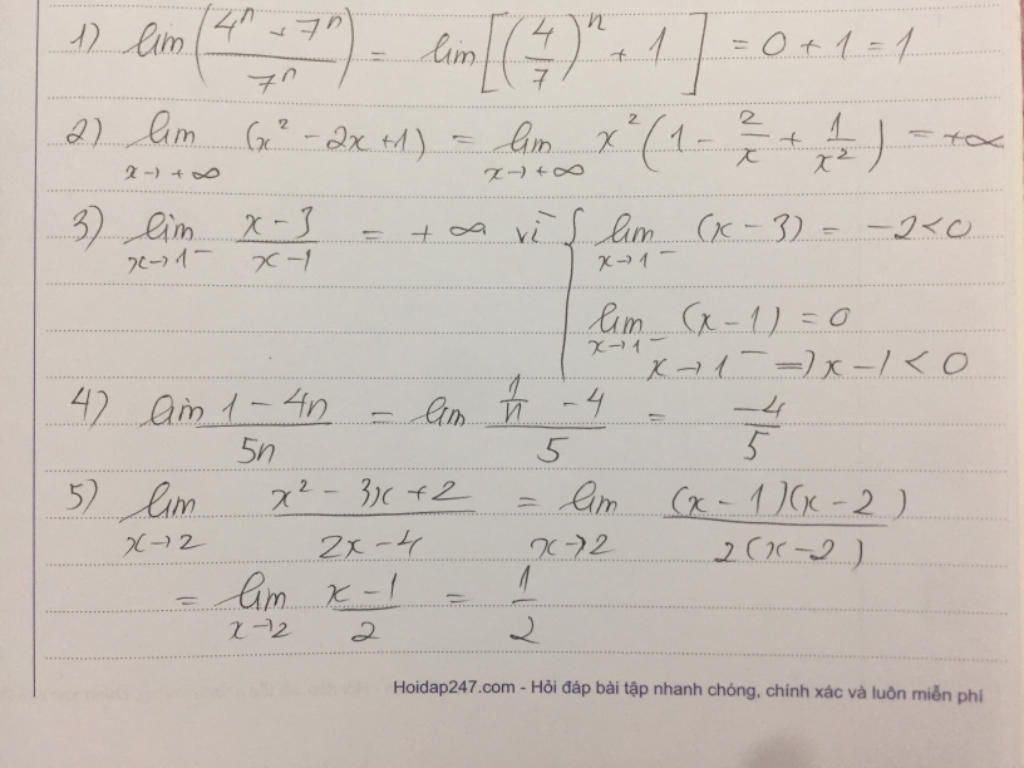 1) lim (4ⁿ + 7ⁿ / 7ⁿ) = lim [(4/7)ⁿ + 1] = 0 + 1 = 1
2) lim x→+∞ (x² - 2x + 1) = lim x→+∞ x² (1 - 2/x + 1/x²) = +∞
3) lim x→1⁻ x-3/x-1 = +∞ vì { lim x→1⁻ (x-3) = -2 < 0
lim x→1⁻ (x-1) = 0
x→1⁻ => x-1 < 0
4) lim 1-4n/5n = lim 1/n -4/5 = -4/5
5) lim x→2 x² - 3x + 2/2x-4 = lim x→2 (x-1)(x-2)/2(x-2)
= lim x→2 x-1/2 = 1/2
Hoidap247.com - Hỏi đáp bài tập nhanh chóng, chính xác và luôn miễn phí